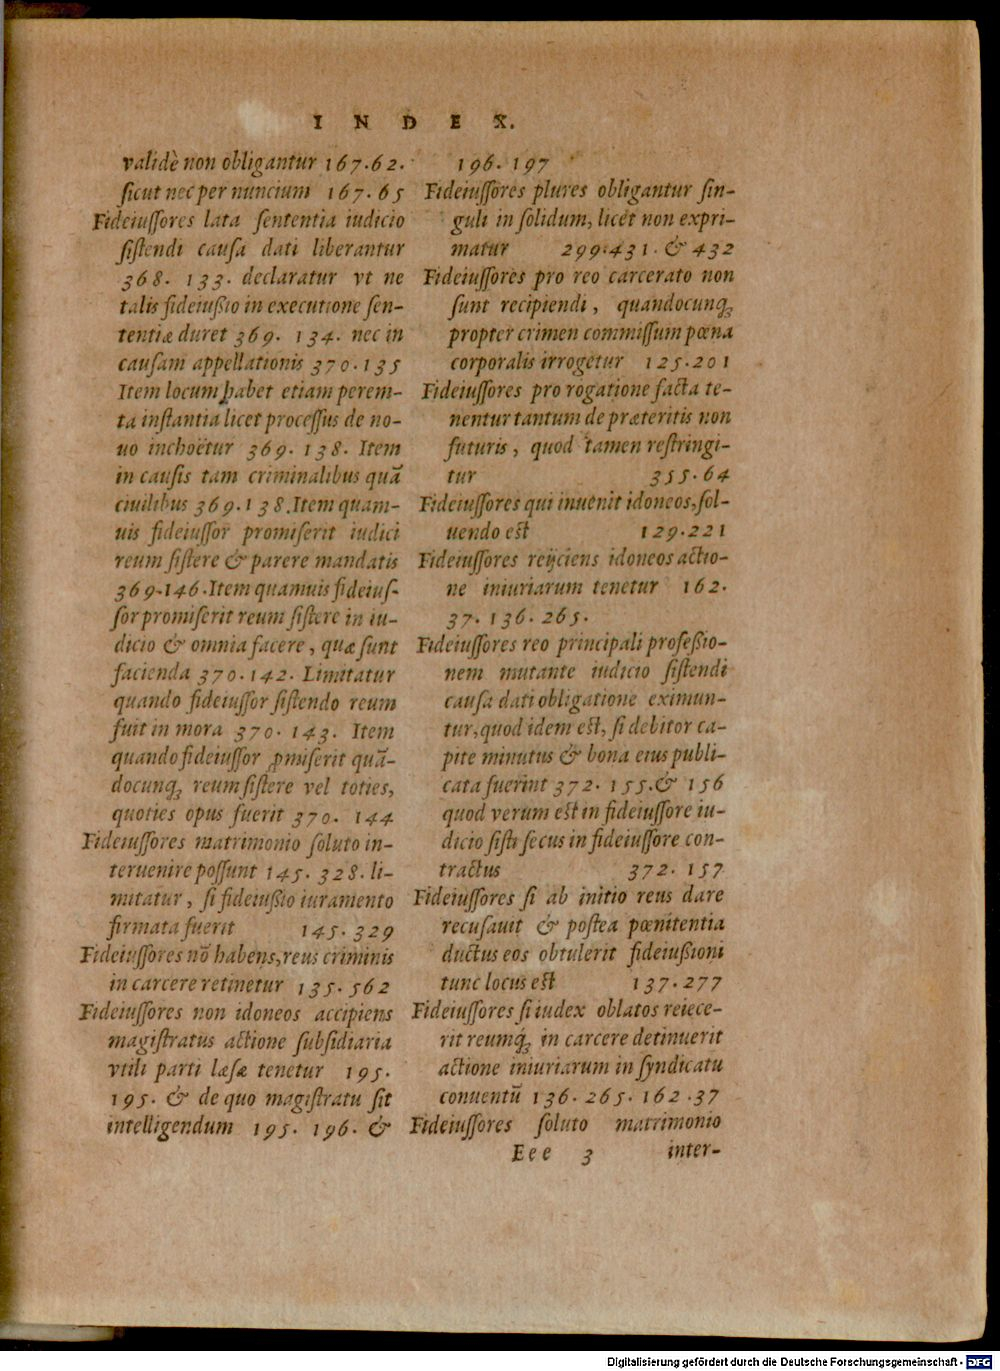 INDEX.
validè non obligantur 167.62.
sicut nec per nuncium 167.65
Fideiussores lata sententia iudicio
sistendi causa dati liberantur
368. 133. declaratur vt ne
talis fideiußio in executione sen-
tentiæ duret 369. 134. nec in
causam appellationis 370.135
Item locum habet etiam perem-
ta instantia licet processus de no-
uo inchoëtur 369. 138. Item
in causis tam criminalibus quā
ciuilibus 369.138. Item quam-
uis fideiussor promiserit iudici
reum sistere & parere mandatis
369.146. Item quamuis fideius-
sor promiserit reum sistere in iu-
dicio & omnia facere, quæ sunt
facienda 370.142. Limitatur
quando fideiussor sistendo reum
fuit in mora 370. 143. Item
quando fideiussor ꝓmiserit quā-
docunqꝫ reum sistere vel toties,
quoties opus fuerit 370. 144
Fideiussores matrimonio soluto in-
teruenire possunt 145. 328. li-
mitatur, si fideiußio iuramento
firmata fuerit 145. 329
Fideiussores nō habens, reus criminis
in carcere retinetur 135. 562
Fideiussores non idoneos accipiens
magistratus actione subsidiaria
vtili parti læsæ tenetur 195.
195. & de quo magistratu sit
intelligendum 195. 196. &
196. 197
Fideiussores plures obligantur sin-
guli in solidum, licet non expri-
matur 299.431. & 432
Fideiussores pro reo carcerato non
sunt recipiendi, quandocunqꝫ
propter crimen commissum pœna
corporalis irrogetur 125.201
Fideiussores pro rogatione facta te-
nentur tantum de præteritis non
futuris, quod tamen restringi-
tur 355.64
Fideiussores qui inuenit idoneos, sol-
uendo est 129.221
Fideiussores reijciens idoneos actio-
ne iniuriarum tenetur 162.
37. 136. 265.
Fideiussores reo principali profeßio-
nem mutante iudicio sistendi
causa dati obligatione eximun-
tur, quod idem est, si debitor ca-
pite minutus & bona eius publi-
cata fuerint 372. 155. & 156
quod verum est in fideiussore iu-
dicio sisti secus in fideiussore con-
tractus 372. 157
Fideiussores si ab initio reus dare
recusauit & postea pœnitentia
ductus eos obtulerit fideiußioni
tunc locus est 137.277
Fideiussores si iudex oblatos reiece-
rit reumq́ꝫ in carcere detinuerit
actione iniuriarum in syndicatu
conuentū 136. 265. 162.37
Fideiussores soluto matrimonio
Eee 3 inter-
Digitalisierung gefördert durch die Deutsche Forschungsgemeinschaft - DFG